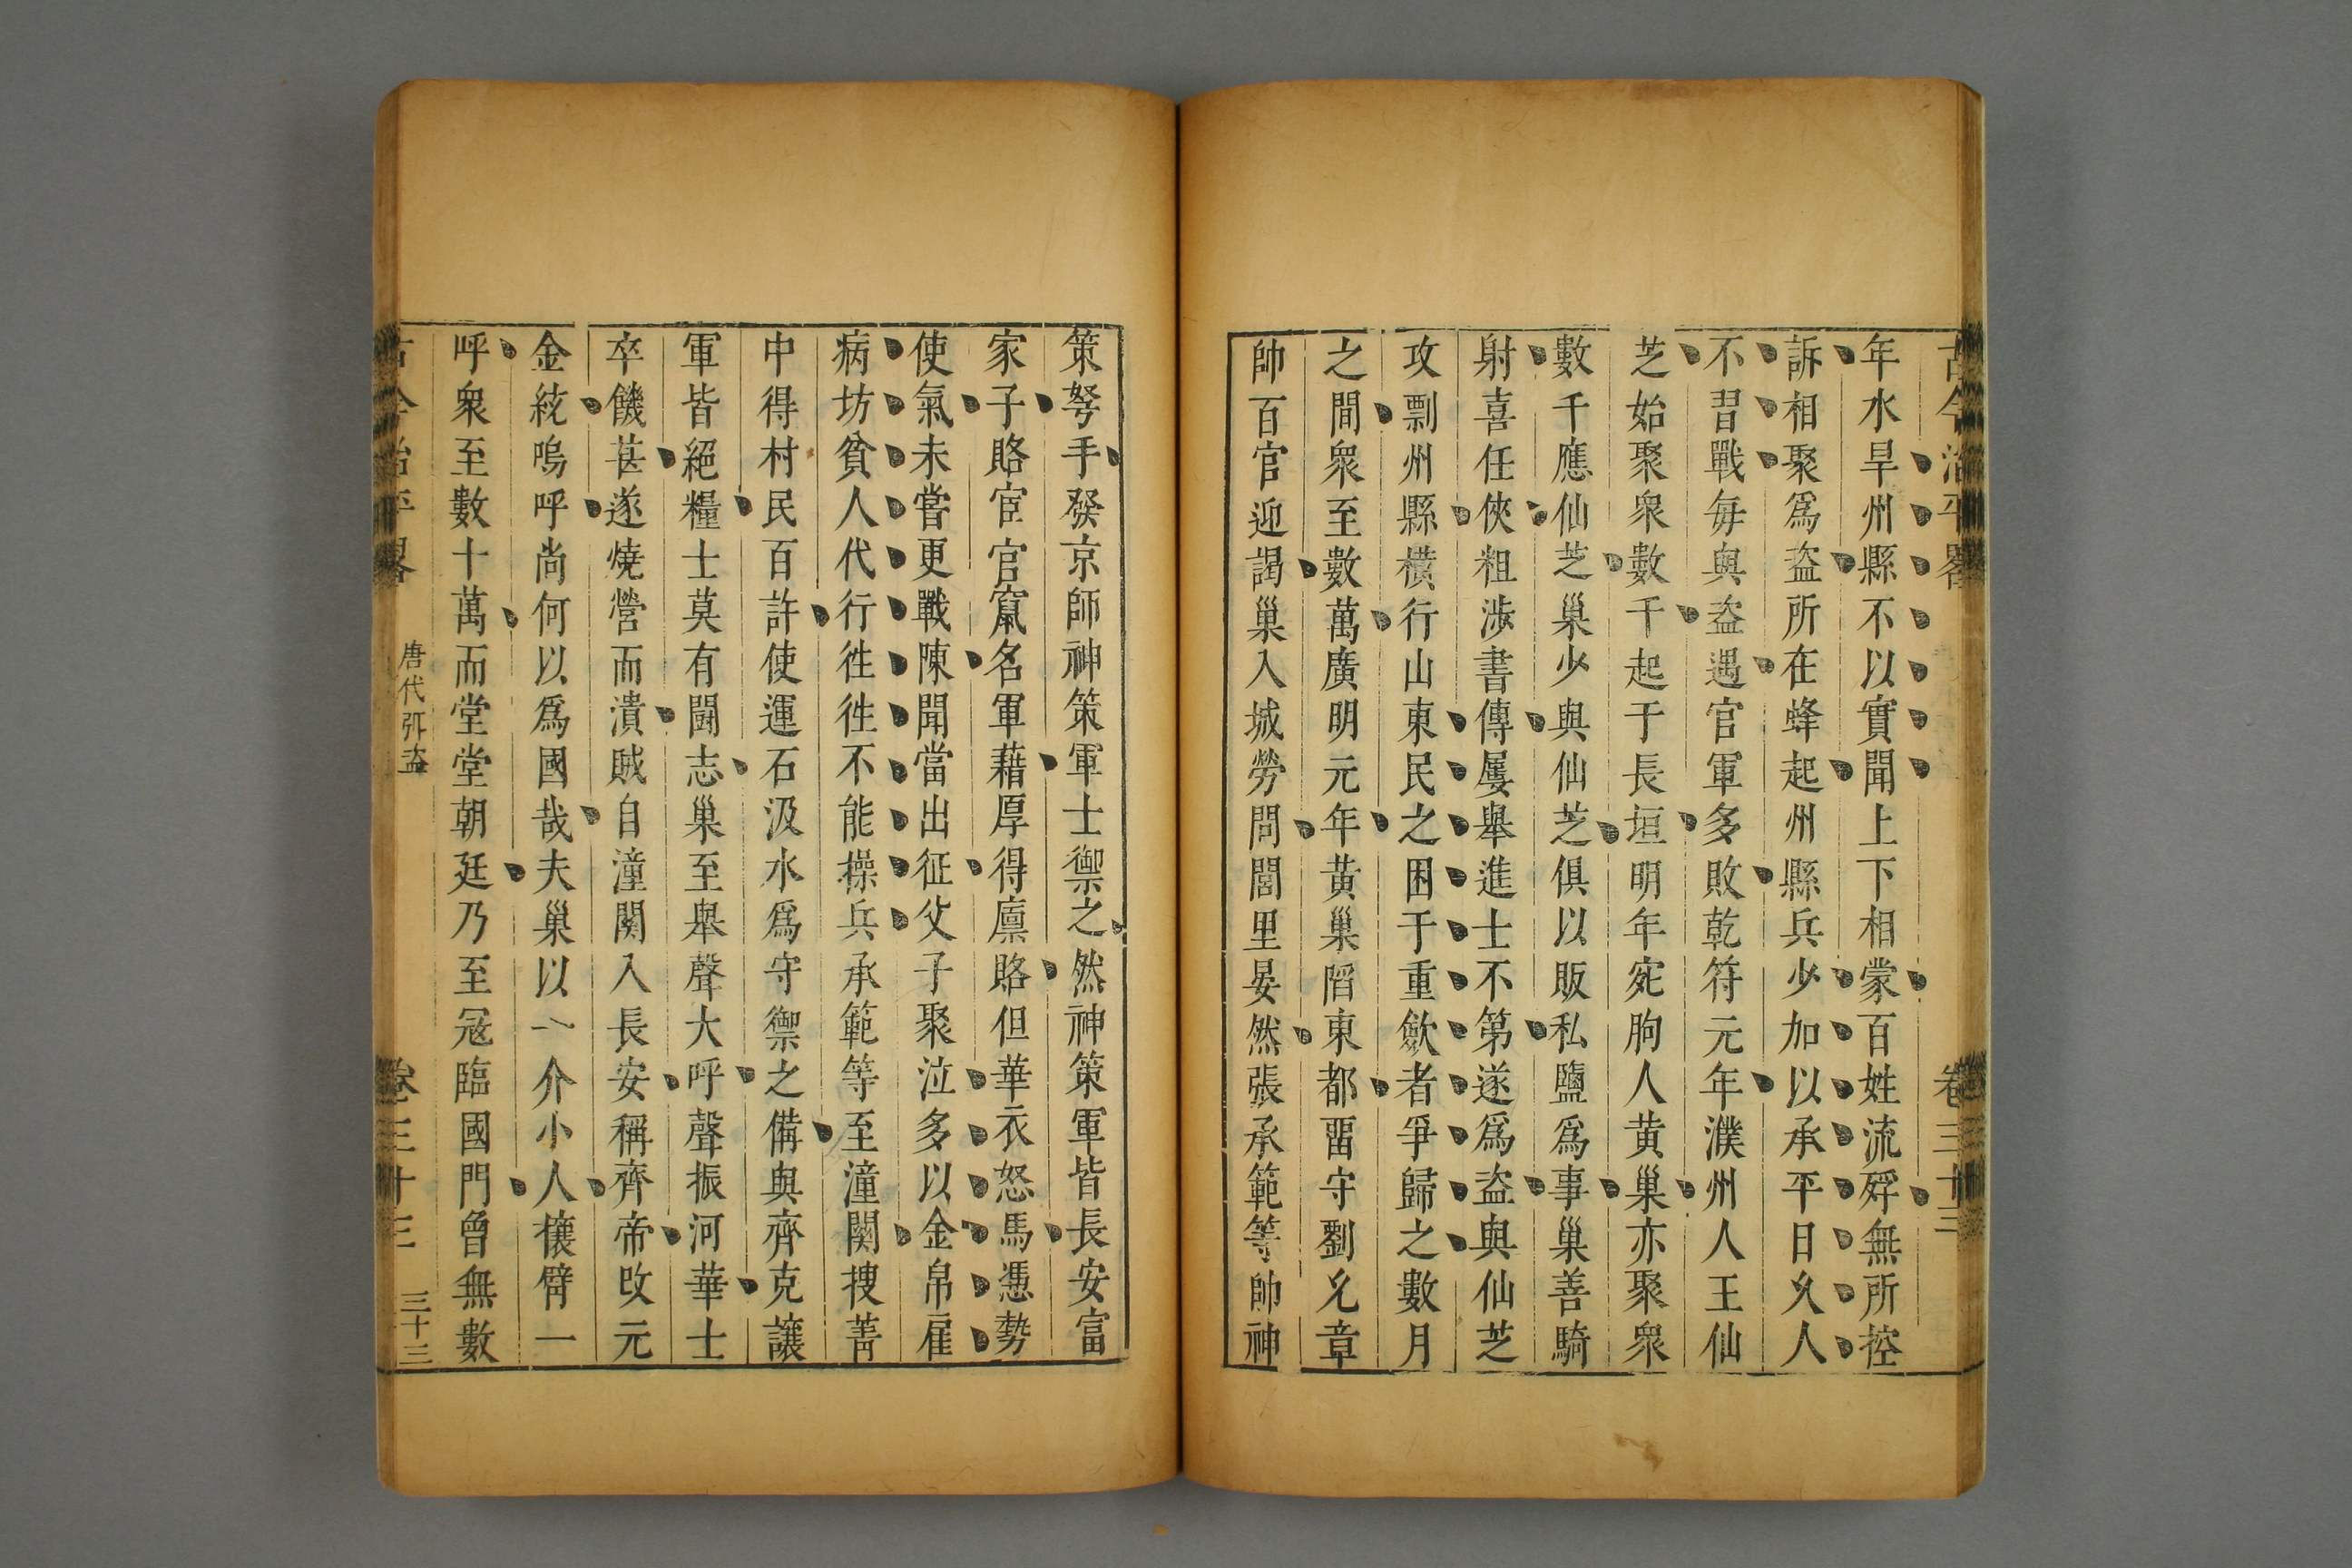 古今治平畧 卷三十三
年水旱州縣不以實聞上下相蒙百姓流殍無所控
訴相聚爲盗所在蜂起州縣兵少加以承平日乆人
不習戰毎與盗遇官軍多敗乾符元年濮州人王仙
芝始聚衆數千起于長垣明年寃朐人黄巢亦聚衆
數千應仙芝巢少與仙芝俱以販私鹽爲事巢善騎
射喜任俠粗渉書傳屢舉進士不第遂爲盗與仙芝
攻剽州縣橫行山東民之困于重歛者爭歸之數月
之間衆至數萬廣明元年黃巢陷東都畱守劉允章
帥百官迎謁巢入城勞問閭里晏然張承範等帥神
策弩手發京師神策軍士禦之然神策軍皆長安富
家子賂宦官竄名軍藉厚得廪賂但華衣怒馬憑勢
使氣未嘗更戰陳聞當出征父子聚泣多以金帛雇
病坊貧人代行徃徃不能操兵承範等至潼関捜菁
中得村民百許使運石汲水爲守禦之備與齊克讓
軍皆絕糧士莫有闘志巢至舉聲大呼聲振河華士
卒饑甚遂燒營而潰賊自潼関入長安稱齊帝改元
金統嗚呼尚何以爲國哉夫巢以一介小人攘臂一
呼衆至數十萬而堂堂朝廷乃至冦臨國門曾無數
古今治平畧 唐代弭盗 卷三十三 三十三